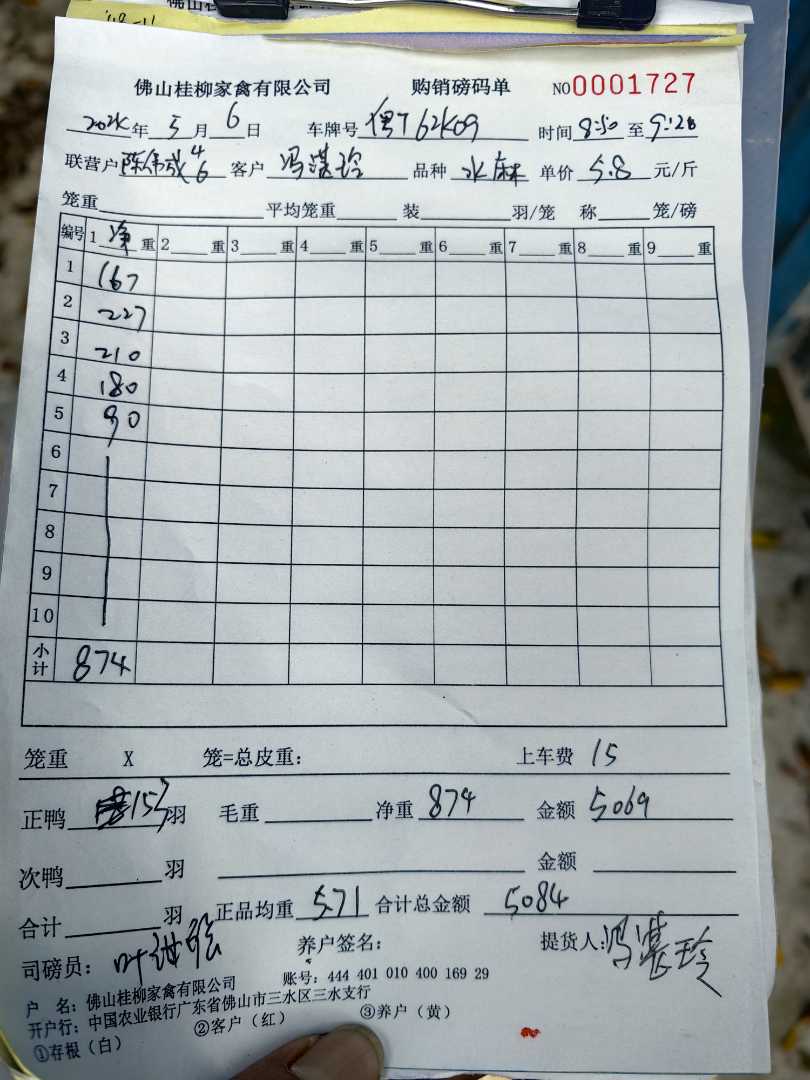 佛山桂柳家禽有限公司 购销磅码单 NO0001727
年 5 月 6 日 车牌号 时间 8:50 至 9:20
联营户 陈伟成 46 客户 冯湛玲 品种 水麻 单价 5.8 元/斤
笼重 平均笼重 装 羽/笼 称 笼/磅
编号 1 净 重 2 重 3 重 4 重 5 重 6 重 7 重 8 重 9 重
1 167
2 227
3 210
4 180
5 90
6
7
8
9
10
小计 874
笼重 X 笼=总皮重： 上车费 15
正鸭 153 羽 毛重 净重 874 金额 5069
次鸭 羽 金额
合计 羽 正品均重 5.71 合计总金额 5084
司磅员： 养户签名： 提货人：冯湛玲
户 名：佛山桂柳家禽有限公司 账号：444 401 010 400 169 29
开户行：中国农业银行广东省佛山市三水区三水支行
①存根（白） ②客户（红） ③养户（黄）